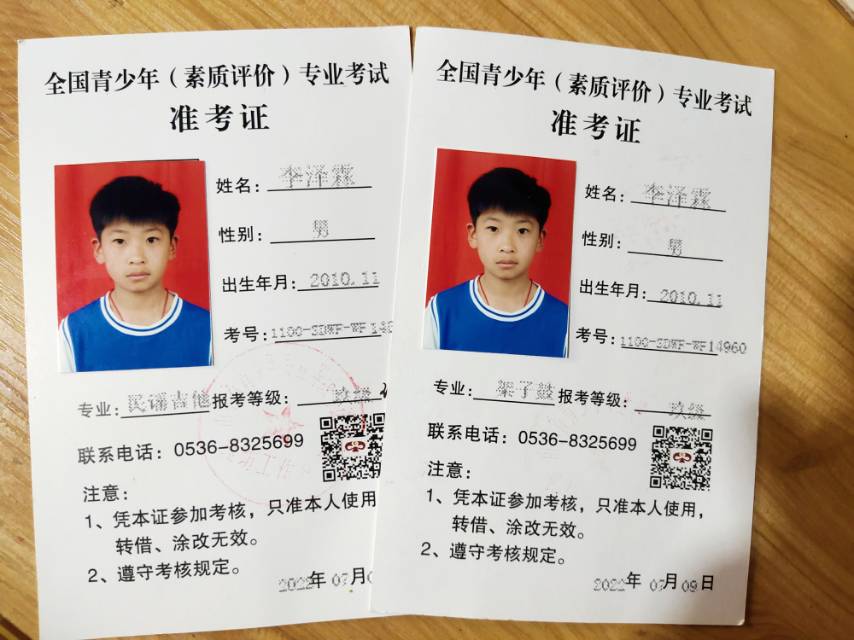 全国青少年（素质评价）专业考试
准考证
姓名：李泽霖
性别：男
出生年月：2010.11
考号：1100-SDWF-WF
专业：民谣吉他报考等级：玖级
联系电话：0536-8325699
注意：
1、凭本证参加考核，只准本人使用
转借、涂改无效。
2、遵守考核规定。
2022年07月
全国青少年（素质评价）专业考试
准考证
姓名：李泽霖
性别：男
出生年月：2010.11
考号：1100-SDWF-WF14960
专业：架子鼓报考等级：玖级
联系电话：0536-8325699
注意：
1、凭本证参加考核，只准本人使用，
转借、涂改无效。
2、遵守考核规定。
2022年07月09日